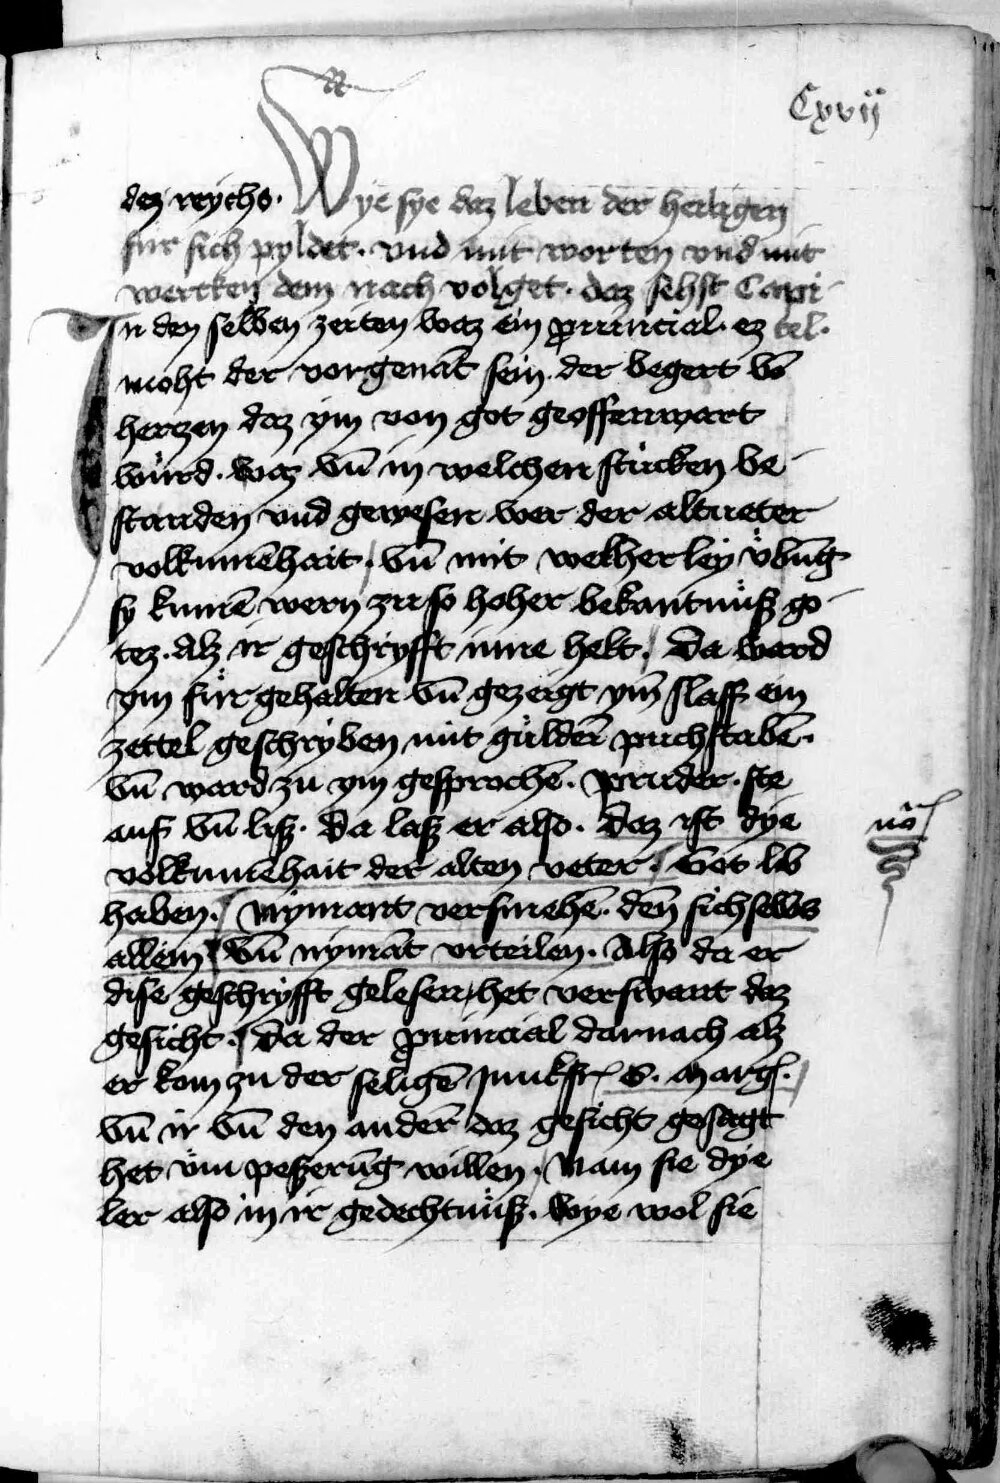 Cxvij
dez reychs. Wye sye daz leben der heiligen
für sich pyldet. vnd mit worten vnd mit
wercken dem nach volget. daz sehst Capi-
In den selben zeiten waz ein prouincial. ez tel.
moht der vorgenāt sein. der begert vō
herczen daz ym von got geoffenwart
würd. waz vn̄ in welchen stücken be-
standen vnd gewesen wer der altueter
volkumēhait. vn̄ mit welherley v̈būg
sy kumē wern zu so hoher bekantnüsz go-
tez. Alz ir geschryfft inne helt. Da ward
ym für gehalten vn̄ gezeigt ym̄ slaff ein
zettel geschryben mit güldeñ puchstabē.
vn̄ ward zu ym gesprochē. pruder. ste
auf vn̄ lisz. Da lasz er also. Daz ist dye
volkumēhait der alten veter. Got lib
haben. Nymant versmehē. den̄ sich selbs
allein vn̄ nymāt vrteilen. Also da er
dise geschryfft gelesen het verswant daz
gesicht. Da der prouincial darnach alz
er kom zu der seligē junkfr S. Marg.
vn̄ ir vn̄ den andeř daz gesicht gesagt
het vm̈ peszerūg willen. Nam sie dye
ler also in ir gedechtnüsz. Wye wol sie
nō